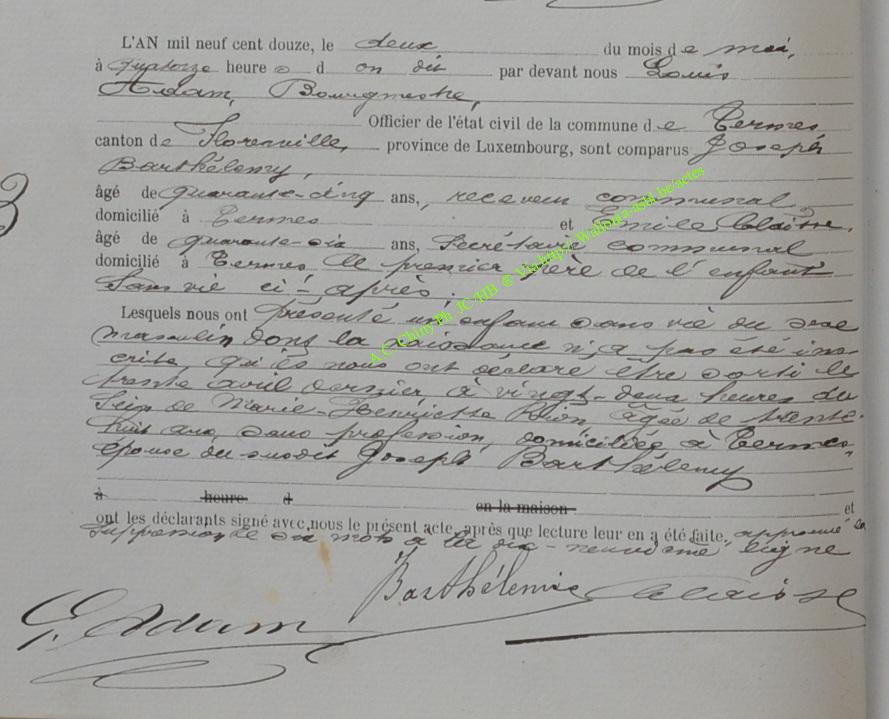 L'AN mil neuf cent douze, le deux du mois de mai,
à quatorze heures d par devant nous Louis
Adam, Bourgmestre,
Officier de l'état civil de la commune de Termes,
canton de Florenville, province de Luxembourg, sont comparus Joseph
Barthélemy,
âgé de quarante-cinq ans, receveur communal
domicilié à Termes et Emile
âgé de quarante-six ans, Secrétaire communal
domicilié à Termes, le premier père de l'enfant
Sans vie ci-après;
Lesquels nous ont présenté un enfant sans vie du sexe
masculin dont la naissance n'a pas été ins-
crite, qu'ils nous ont déclaré être sorti le
trente avril dernier à vingt-deux heures du
Sein de Marie-Henriette âgée de trente-
huit ans, sans profession, domiciliée à Termes,
épouse du susdit Joseph Barthélemy
à heure d en la maison et
ont les déclarants signé avec nous le présent acte, après que lecture leur en a été faite, approuvé la
Suppression de six mots à la dix-neuvième ligne
Barthélemy
Adam
A.C. Chiny Ph JC HB @ Via bnpic Wallonia-asbl.be/actes
3